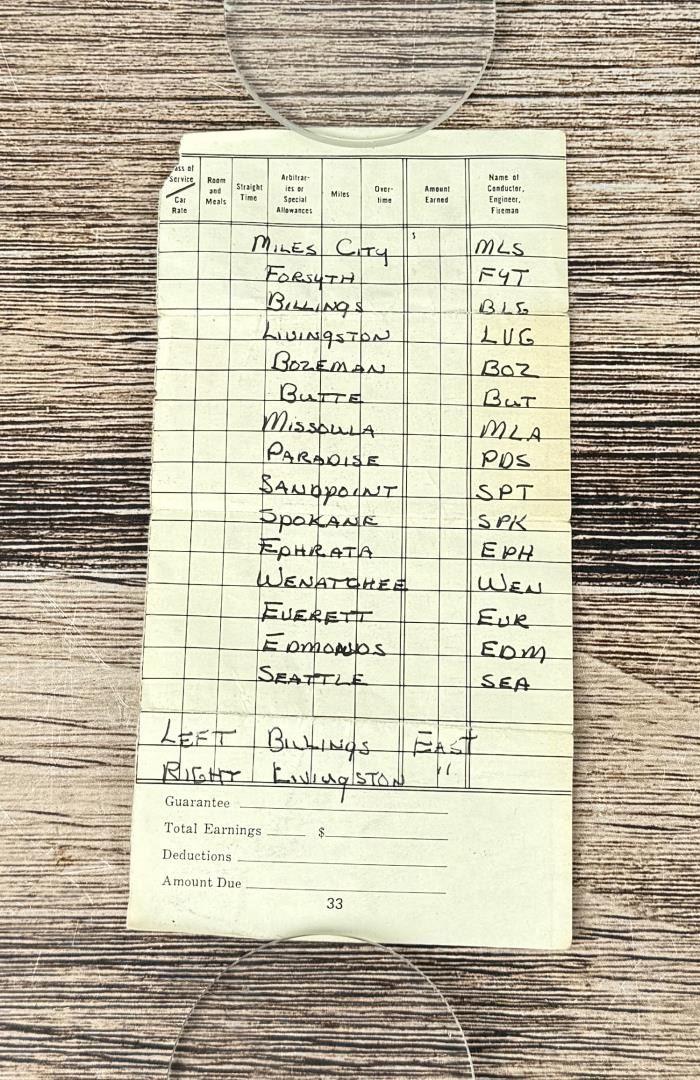 ass of Service Car Rate Room and Meals Straight Time Arbitrar- ies or Special Allowances Miles Over- time Amount Earned Name of Conductor, Engineer, Fireman
$
MILES CITY MLS
FORSYTH FYT
BILLINGS BLG
LIVINGSTON LVG
BOZEMAN BOZ
BUTTE BUT
MISSOULA MLA
PARADISE PDS
SANDPOINT SPT
SPOKANE SPK
EPHRATA EPH
WENATCHEE WEN
EVERETT EVR
EDMONDS EDM
SEATTLE SEA
LEFT BILLINGS EAST
RIGHT LIVINGSTON "
Guarantee
Total Earnings $
Deductions
Amount Due
33